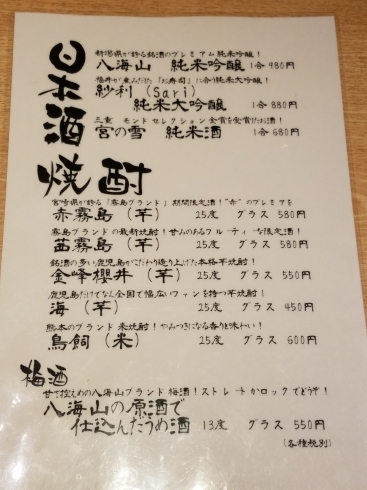 日本酒
新潟県が誇る銘酒のプレミアム純米吟醸！
八海山 純米吟醸 1合 980円
福井が産みだた「お寿司」に合う純米大吟醸！
紗利（Sari）
純米大吟醸 1合 880円
三重 モンドセレクション金賞を受賞せたお酒！
宮の雪 純米酒 1合 680円
焼酎
宮崎県が誇る「霧島ブランド」期間限定酒！"赤"のプレミアを
赤霧島（芋） 25度 グラス 580円
霧島ブランドの最新焼酎！甘みのあるフルーティーな限定酒！
茜霧島（芋） 25度 グラス 580円
銘酒の多い鹿児島がこだわり造り上げた本格芋焼酎！
金峰櫻井（芋） 25度 グラス 550円
鹿児島だけでなく全国で幅広いファンを持つ芋焼酎！
海（芋） 25度 グラス 450円
熊本のブランド米焼酎！やみつきになる香りと味わい！
鳥飼（米） 25度 グラス 600円
梅酒
甘さ控えめの八海山ブランド梅酒！ストレートかロックでどうぞ！
八海山の原酒で
仕込んだうめ酒 13度 グラス 550円
（各種税別）